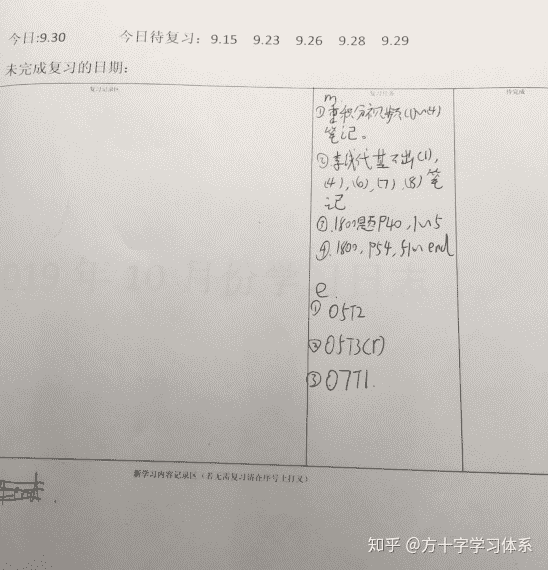 今日:9.30 今日待复习: 9.15 9.23 9.26 9.28 9.29
未完成复习的日期:
复习记录区 复习任务 待完成
m
①重积分视频(1)~(4)
笔记。
②李线代基础(1),
(4),(6),(7),(8)笔
记
③.1800题P40,1~5
④.1800,P54,51~end
e.
① 05T2
② 05T3(r)
③ 07T1.
新学习内容记录区(若无需复习请在序号上打叉)
知乎 @方十字学习体系